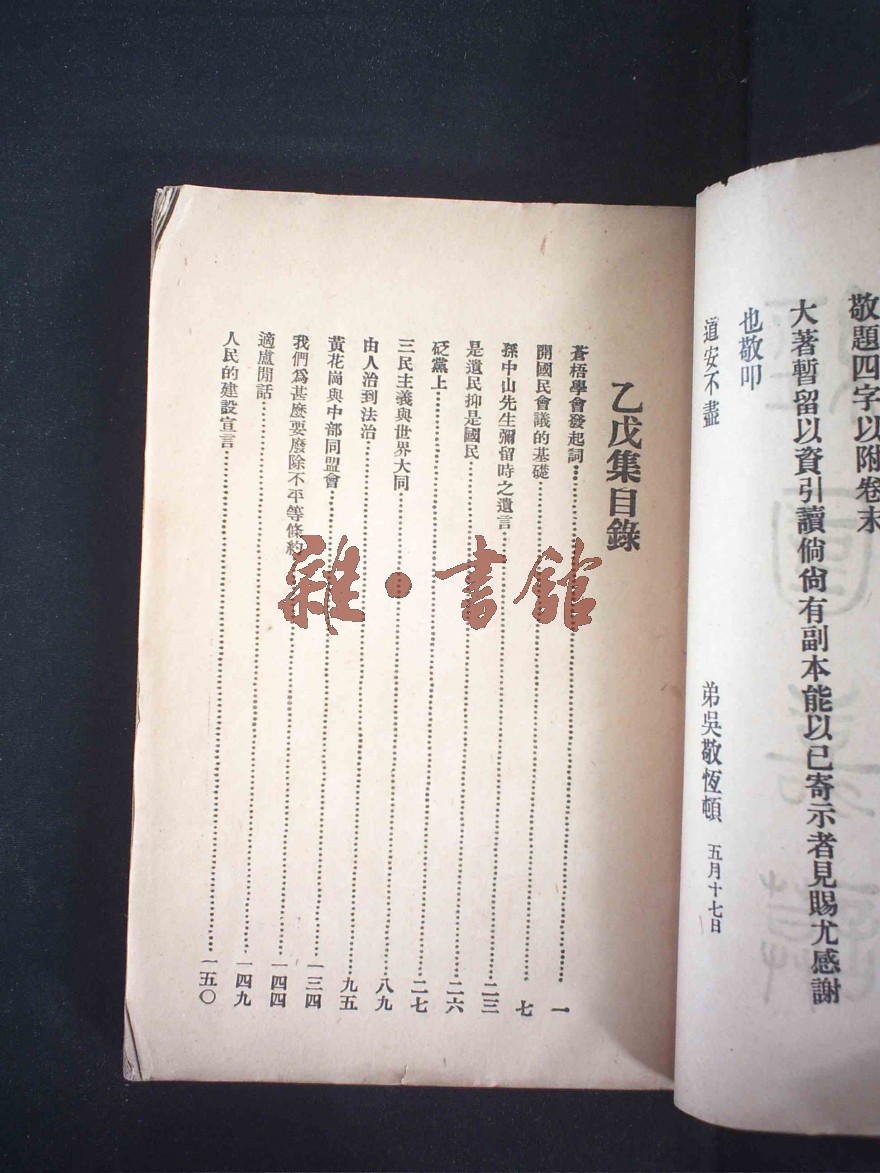 敬題四字以附卷末
大著暫留以資引讀倘尙有副本能以已寄示者見賜尤感謝
也敬叩
道安不盡
弟吳敬恆頓 五月十七日
乙戊集目錄
蒼梧學會發起詞 一
開國民會議的基礎 七
孫中山先生彌留時之遺言 二三
是遺民抑是國民 二六
砭黨上 二七
三民主義與世界大同 八九
由人治到法治 九五
黃花崗與中部同盟會 一三四
我們爲甚麽要廢除不平等條約 一四四
適盧閒話 一四九
人民的建設宣言 一五〇
雜·書館